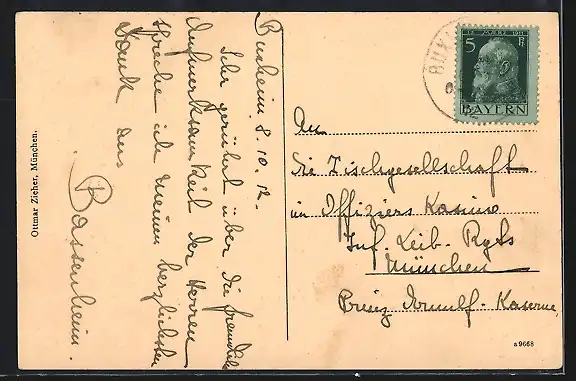 Buxheim 8.10.12.
Sehr gerührt über die freundl.
Aufmerksamkeit der Herren
spreche ich meinen herzlichsten
Dank aus
Bassenheim.
Ottmar Zieher, München.
12. MÄRZ 1911
5 Pf
BAYERN
BUX
An
die Tischgesellschaft
im Offiziers Kasino
Inf. Leib. Rgts
München
Prinz Arnulf-Kaserne
a 9668